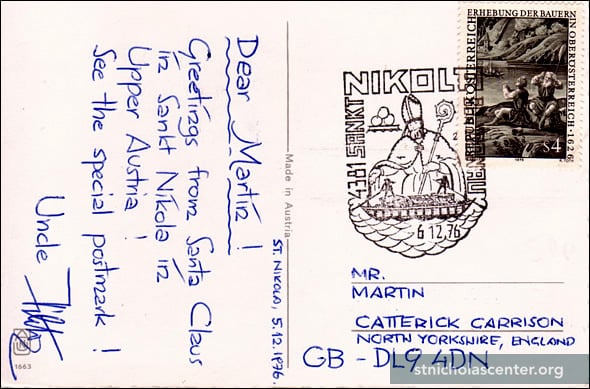 Dear Martin!
Greetings from Santa Claus
in Sankt Nikola in
Upper Austria!
See the special postmark!
Uncle
Made in Austria
ST. NIKOLA, 5.12.1976.
1663
4381 SANKT
NIKOL
6.12.76
ERHEBUNG DER BAUERN
IN OBERÖSTERREICH · 1626
REPUBLIK ÖSTERREICH
S4
MR.
MARTIN
CATTERICK GARRISON
NORTH YORKSHIRE, ENGLAND
GB - DL9 4DN
stnicholascenter.org